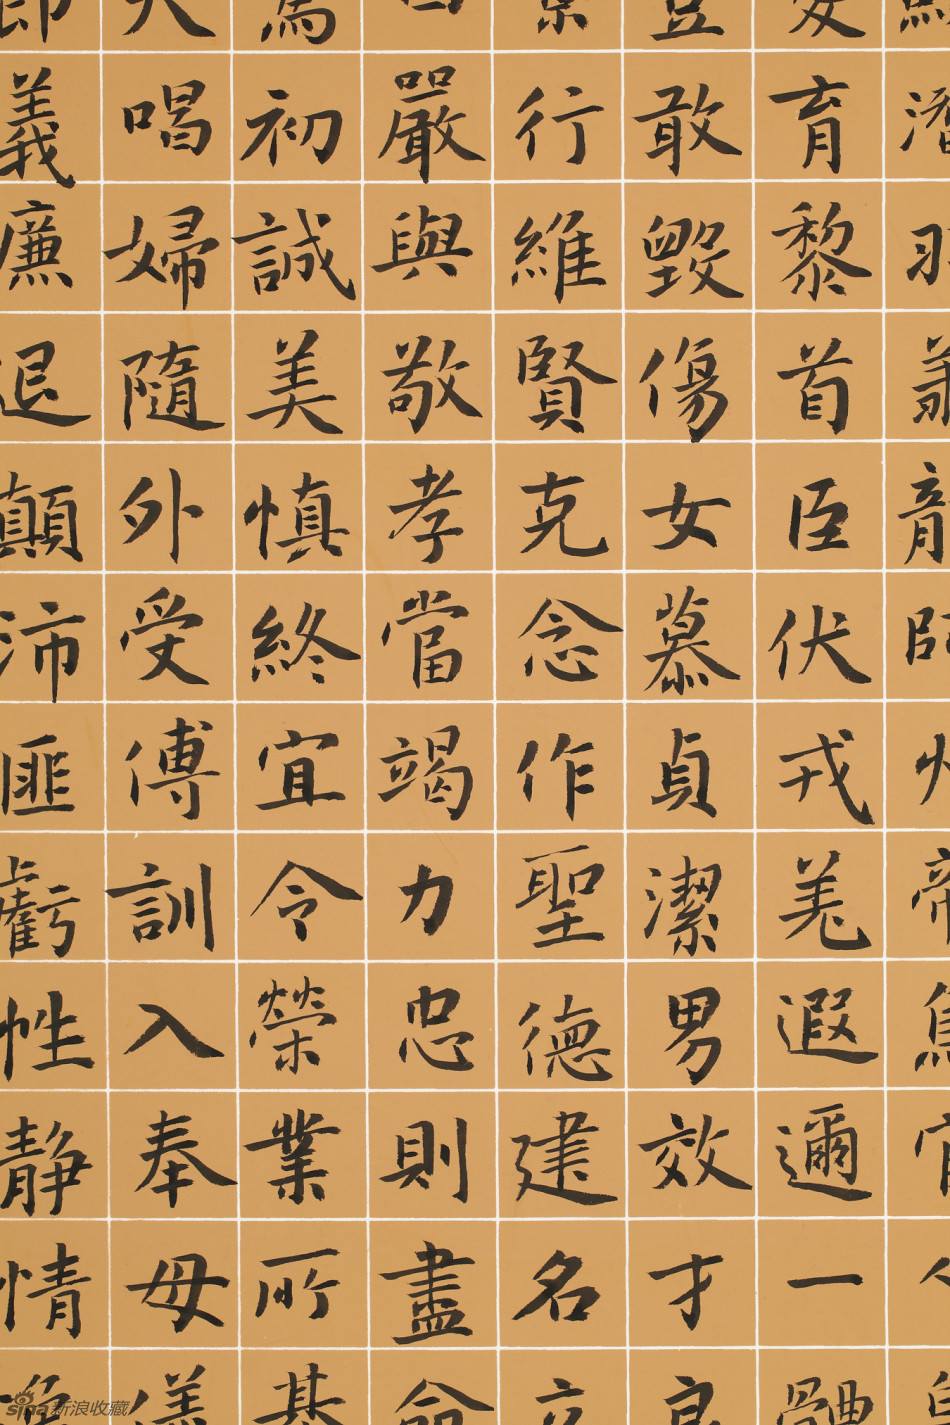 潛羽翔龍師火帝鳥官人
愛育黎首臣伏戎羌遐邇一體
豈敢毀傷女慕貞潔男效才良
景行維賢克念作聖德建名立
曰嚴與敬孝當竭力忠則盡命
篤初誠美慎終宜令榮業所基
夫唱婦隨外受傅訓入奉母儀
節義廉退顛沛匪虧性靜情逸
sina新浪收藏